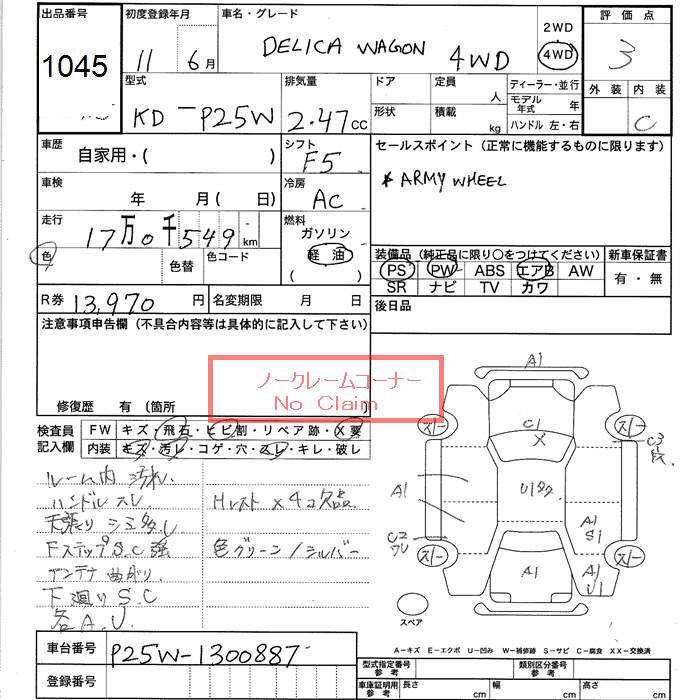 出品番号
1045
初度登録年月
11 6月
車名・グレード
DELICA WAGON 4WD
2WD
4WD
評価点
3
外装 内装
C
型式
KD-P25W
排気量
2.47cc
ドア
形状
定員
人
積載
kg
ディーラー・並行
モデル年式 年
ハンドル 左・右
車歴
自家用・( )
シフト
F5
セールスポイント (正常に機能するものに限ります)
* ARMY WHEEL
車検
年 月( 日)
冷房
AC
走行
17万0千549km
燃料
ガソリン
軽油
( )
色
色替
色コード
装備品 (純正品に限り○をつけてください)
PS PW ABS エアB AW
SR ナビ TV カワ
新車保証書
有・無
R券 13,970円
名変期限 月 日
後日品
注意事項申告欄 (不具合内容等は具体的に記入して下さい)
ノークレームコーナー
No Claim
修復歴 有 (箇所
検査員記入欄
FW キズ・飛石・ヒビ割・リペア跡・X要
内装 キズ・汚レ・コゲ・穴・スレ・キレ・破レ
ルーム内 汚れ.
ハンドル スレ
天張り シミ多し
FステップS.C強
アンテナ曲がり.
下廻りS.C
各A.U.
Hレスト×4コ欠品.
色グリーン/シルバー
A1
スレー
スレー
C1
X
C3
A1
U1多
C2
A1
S1
スレー
スレー
A1
A1
U1
スペア
A-キズ E-エクボ U-凹み W-補修跡 S-サビ C-腐食 XX-交換済
車台番号
P25W-1300887
登録番号
型式指定番号 参考
類別区分番号 参考
車庫証明用 参考
長さ cm
幅 cm
高さ cm